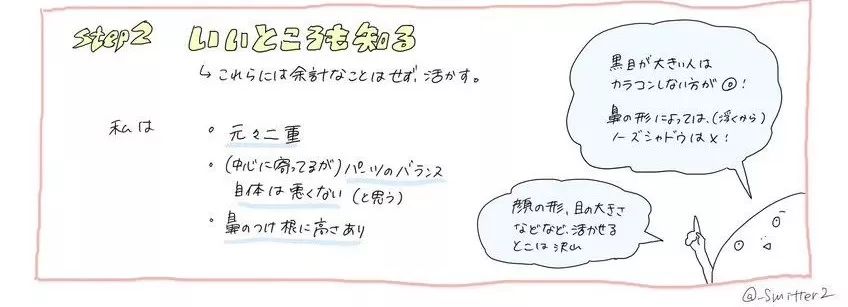 Step2 いいところも知る
↳これらには余計なことはせず、活かす。
私は
・元々二重
・(中心に寄ってるが)パーツのバランス
自体は悪くない(と思う)
・鼻のつけ根に高さあり
黒目が大きい人は
カラコンしない方が◎!
鼻の形によっては、(浮くから)
ノーズシャドウは×!
顔の形、目の大きさ
などなど、活かせる
とこは沢山
@_smitter2